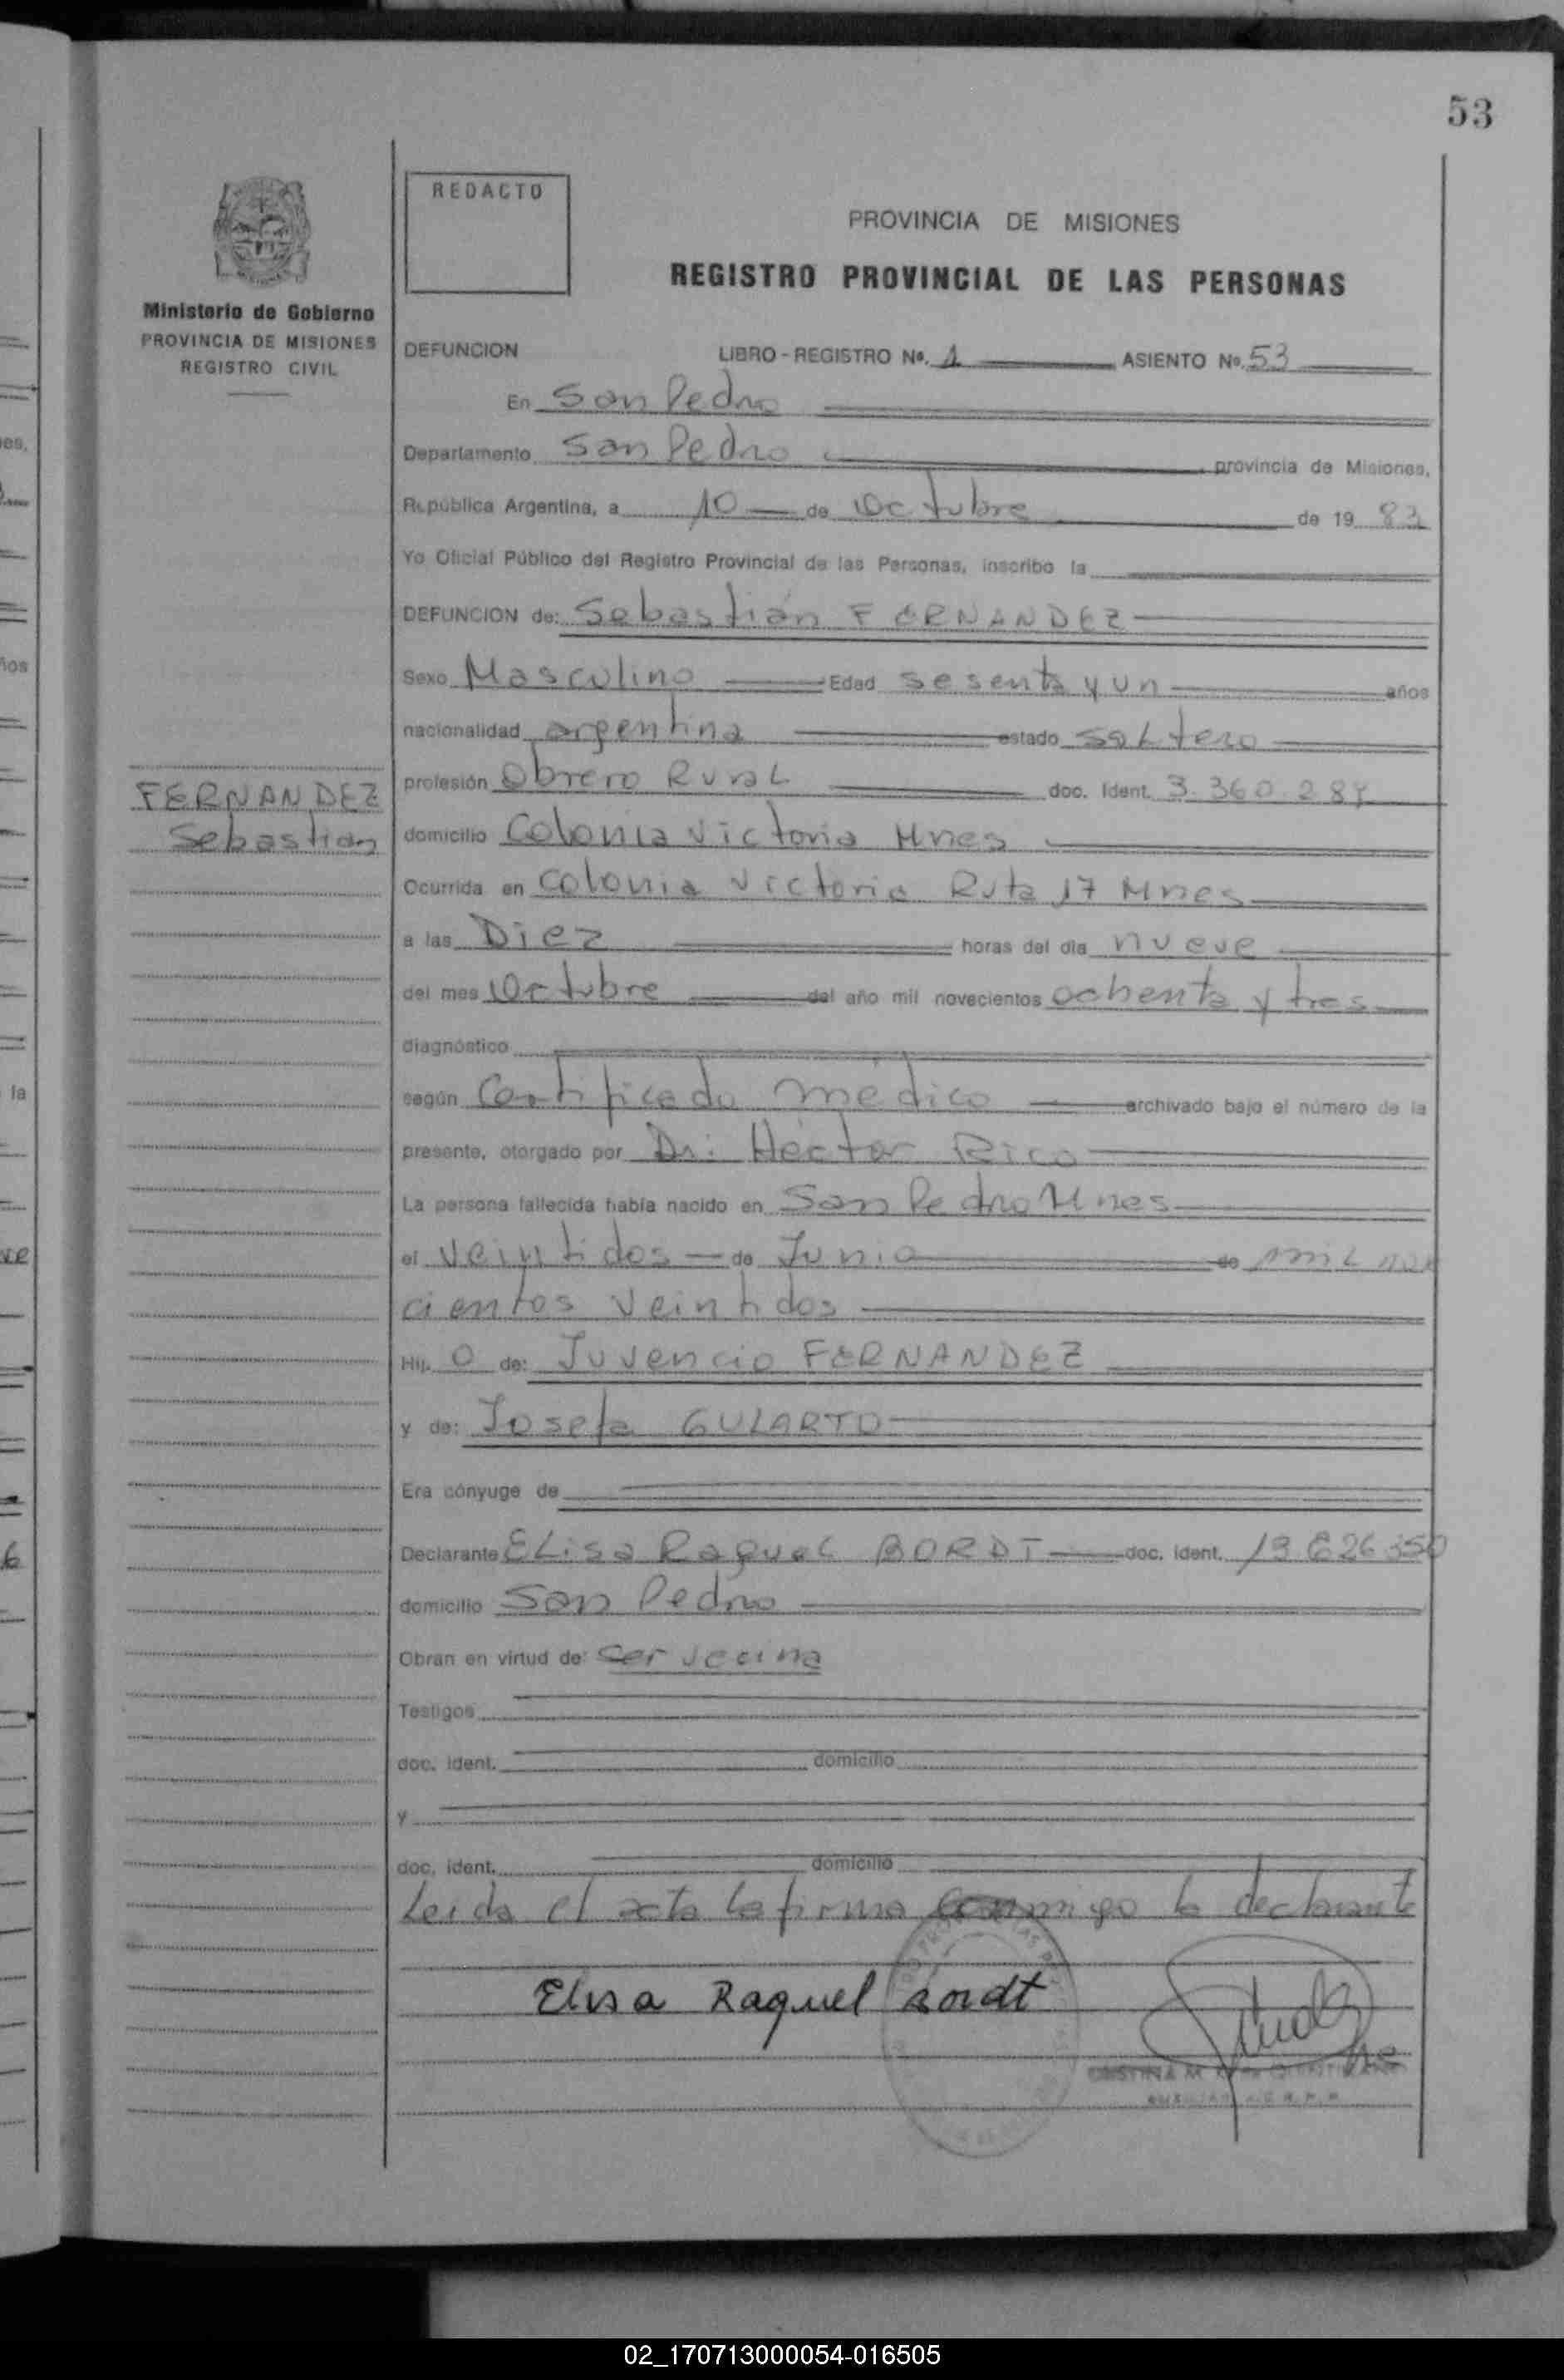 53
REDACTO
PROVINCIA DE MISIONES
REGISTRO PROVINCIAL DE LAS PERSONAS
Ministerio de Gobierno
PROVINCIA DE MISIONES
REGISTRO CIVIL
DEFUNCION LIBRO - REGISTRO Nº. 1 ASIENTO Nº. 53
En San Pedro
Departamento San Pedro provincia de Misiones,
República Argentina, a 10 de Octubre de 19 83
Yo Oficial Público del Registro Provincial de las Personas, inscribo la
DEFUNCION de: Sebastián FERNANDEZ
Sexo Masculino Edad sesenta y un años
nacionalidad argentina estado soltero
profesión Obrero Rural doc. Ident. 3.360.287
FERNANDEZ
Sebastian
domicilio Colonia Victoria Mnes
Ocurrida en Colonia Victoria Ruta 17 Mnes
a las Diez horas del día nueve
del mes Octubre del año mil novecientos ochenta y tres
diagnóstico
según Certificado médico archivado bajo el número de la
presente, otorgado por Dr. Héctor Rico
La persona fallecida había nacido en San Pedro Mnes
el veintidos de Junio de mil nove
cientos veintidos
Hij o de: Juvencio FERNANDEZ
y de: Josefa GULARTO
Era cónyuge de
Declarante Elisa Raquel BORDT doc. ident. 13.626.350
domicilio San Pedro
Obran en virtud de: ser vecina
Testigos
doc. ident. domicilio
y
doc. ident. domicilio
Leida el acta la firma conmigo la declarante
Elisa Raquel Bordt
02_170713000054-016505